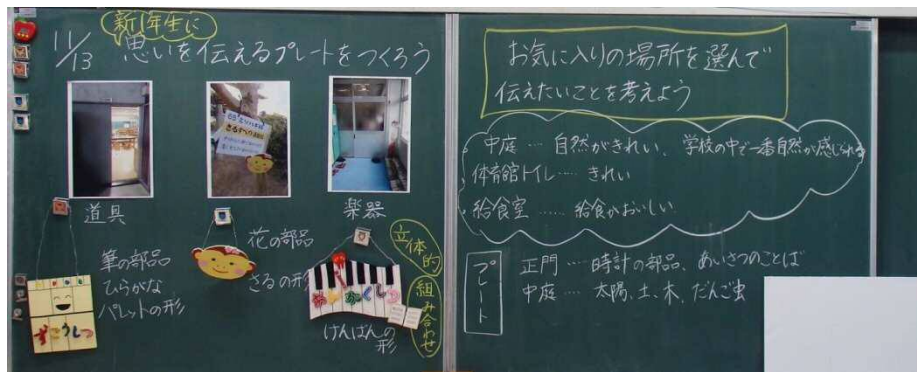 11/13
新1年生に
思いを伝えるプレートをつくろう
道具
筆の部品
ひらがな
パレットの形
ずこうしつ
さるすべり
花の部品
さるの形
楽器
おんがくしつ
けんばんの
形
立体的
組み合わせ
お気に入りの場所を選んで
伝えたいことを考えよう
中庭…自然がきれい、学校の中で一番自然が感じられる
体育館トイレ……きれい
給食室……給食がおいしい
プレート
正門……時計の部品、あいさつのことば
中庭……太陽、土、木、だんご虫